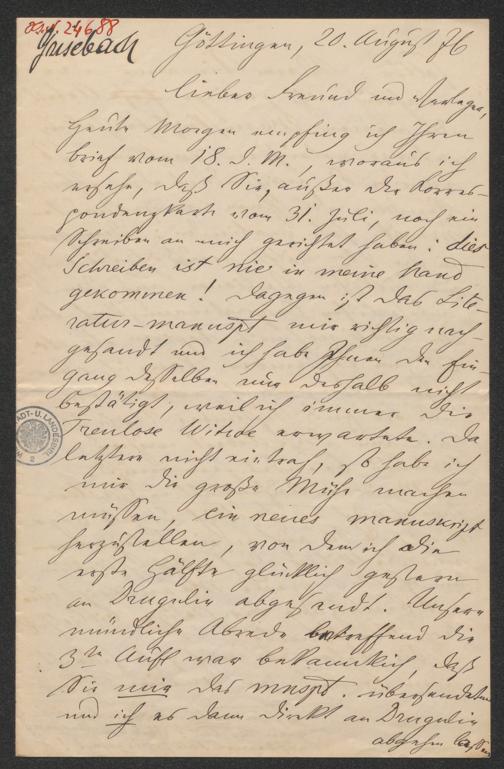 Osif. 24688
Grisebach
Göttingen, 20. August 76
Lieber Freund und Verleger,
Heute Morgen empfing ich Ihren
Brief vom 18. d. M., woraus ich
ersehe, daß Sie, außer der Korres-
pondenzkarte vom 31. Juli, noch ein
Schreiben an mich gerichtet haben: dies
Schreiben ist nie in meine Hand
gekommen! Dagegen ist das Lite-
ratur-manuspt mir richtig nach-
gesandt und ich habe Ihnen den Ein-
gang desselben nur deshalb nicht
bestätigt, weil ich immer die
Treulose Witwe erwartete. Da
letztere nicht eintraf, so habe ich
mir die große Mühe machen
müssen, ein neues Manuskript
herzustellen, von dem ich die
erste Hälfte glücklich gestern
an Drugulin abgesandt. Unsere
mündliche Abrede betreffend die
3te Aufl war bekanntlich, daß
Sie mir das mnspt. übersendeten
und ich es dann direkt an Drugulin
abgehen lassen